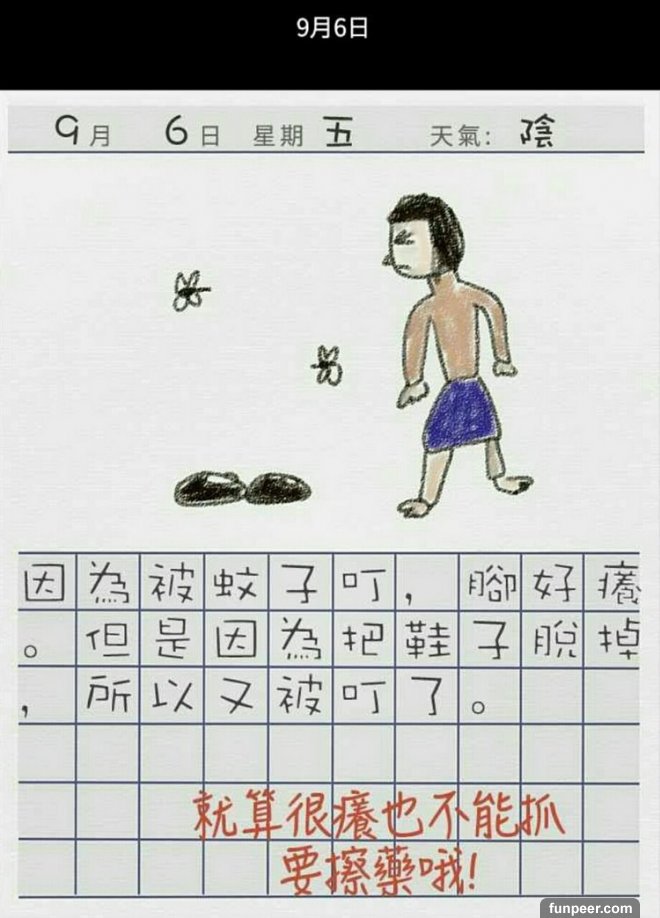 9月6日
9月 6日 星期 五 天氣: 陰
因為被蚊子叮,腳好癢
。但是因為把鞋子脫掉
,所以又被叮了。
就算很癢也不能抓
要擦藥哦!
funpeer.com